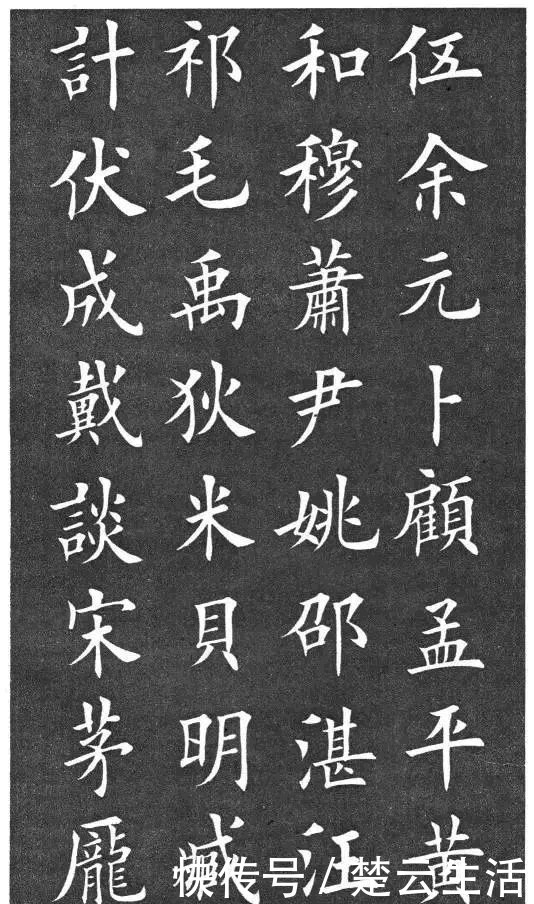 伍余元卜顧孟平黃
和穆蕭尹姚邵湛汪
祁毛禹狄米貝明臧
計伏成戴談宋茅龐
快传号/楚云生活